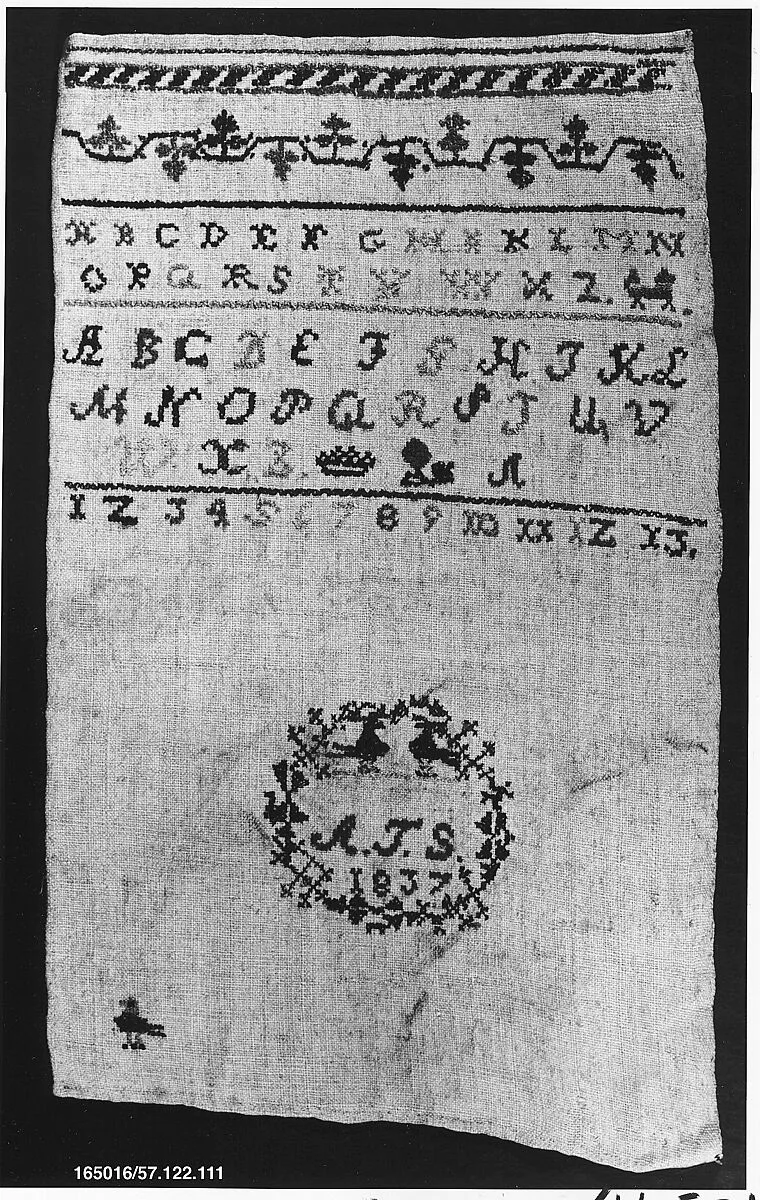 A B C D E F G H I K L M N
O P Q R S T V W X Z.
A B C D E F G H I K L
M N O P Q R S T U V
W X Z. A
1 2 3 4 5 6 7 8 9 10 11 12 13.
A.T.S.
1837
165016/57.122.111